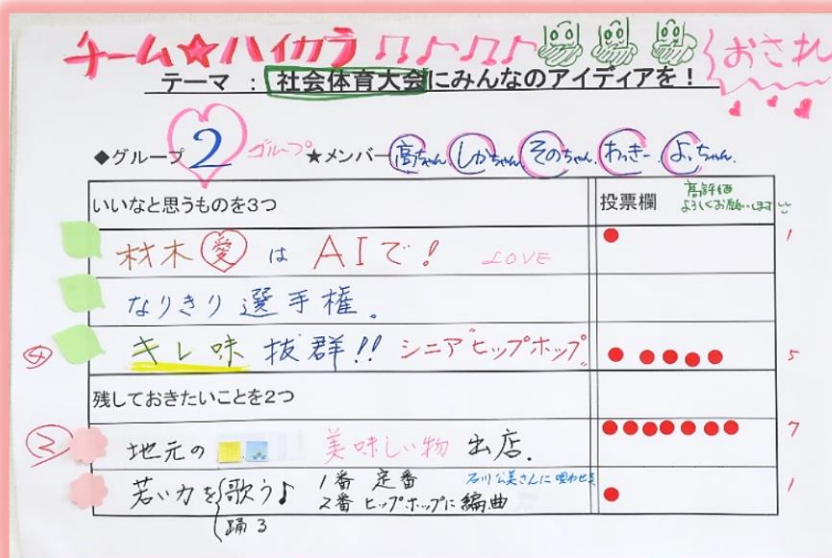 チーム★ハイカラ ♫♪♫♪ おされ
テーマ ： 社会体育大会にみんなのアイディアを！
◆グループ 2 グループ ★メンバー 高ちゃん しかちゃん そのちゃん わっきー よっちゃん
いいなと思うものを3つ 投票欄 高評価
よろしくお願いします
材木 愛 は AIで！ LOVE 1
なりきり 選手権。
キレ味 抜群!! シニア"ヒップホップ" 5
残しておきたいことを2つ
2 地元の 美味しい物 出店. 7
若い力を 歌う♪ 1番 定番 石川公美さんに 1
踊る 2番 ヒップホップに編曲